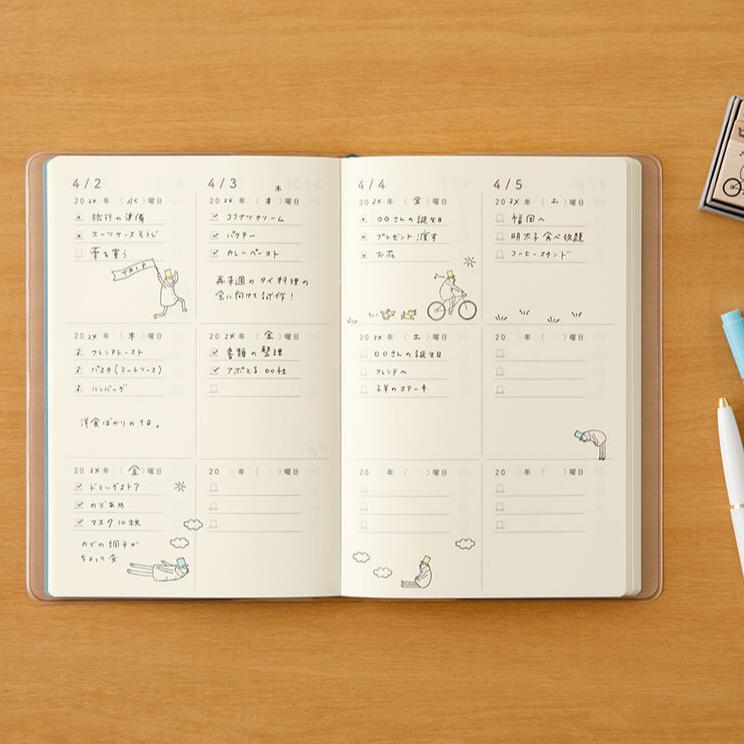 4/2
20 2X 年 (水) 曜日
旅行の準備
スーツケースそうじ
薬を買う
TRIP
20 2X 年 (木) 曜日
フレンチトースト
パスタ(ミートソース)
ハンバーグ
洋食ばかりの1日。
20 2X 年 (金) 曜日
ドラッグストア
のどあめ
マスク10枚
のどの調子が
ちょっと変
4/3
木
20 2X 年 (木) 曜日
ココナツクリーム
パクチー
カレーペースト
再来週のタイ料理の
会に向けて試作!
20 2X 年 (金) 曜日
書類の整理
アポとる 〇〇社
20 年 ( ) 曜日
4/4
20 2X 年 (金) 曜日
〇〇さんの誕生日
プレゼント渡す
お花
20 2X 年 (土) 曜日
〇〇さんの誕生日
フレンチへ
子羊のステーキ
20 年 ( ) 曜日
4/5
20 2X 年 (土) 曜日
福岡へ
明太子食べ放題
コーヒースタンド
20 年 ( ) 曜日
20 年 ( ) 曜日